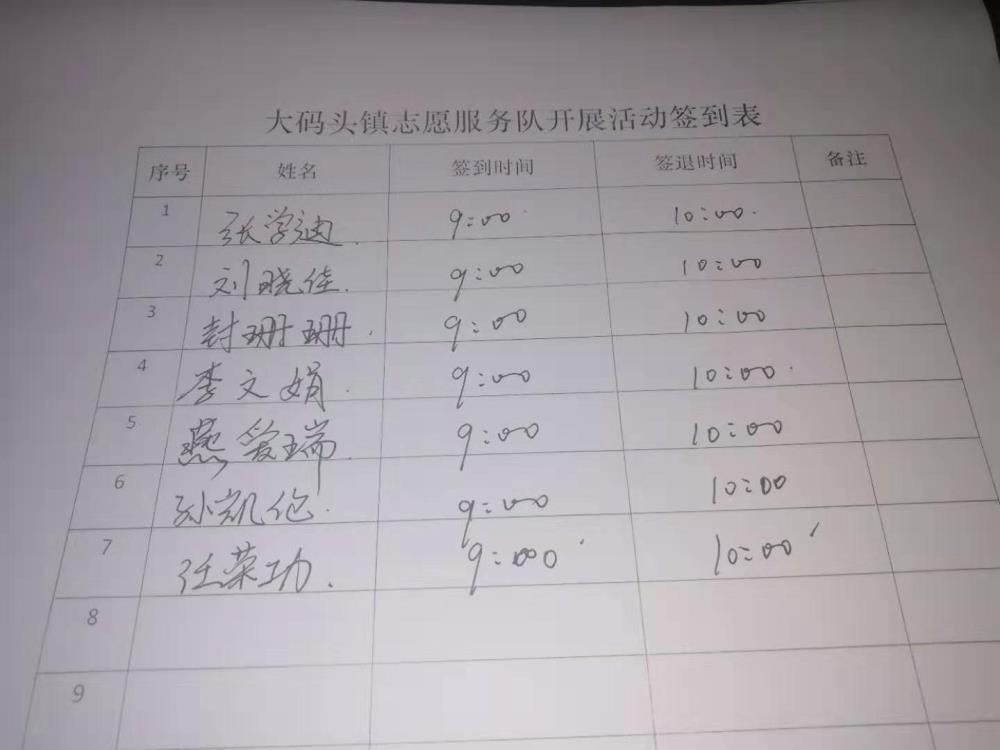 大码头镇志愿服务队开展活动签到表
序号 姓名 签到时间 签退时间 备注
1 张学迪 9:00 10:00
2 刘晓佳 9:00 10:00
3 封珊珊 9:00 10:00
4 李文娟 9:00 10:00
5 燕爱瑞 9:00 10:00
6 孙凯伦 9:00 10:00
7 任荣功 9:000 10:00
8
9